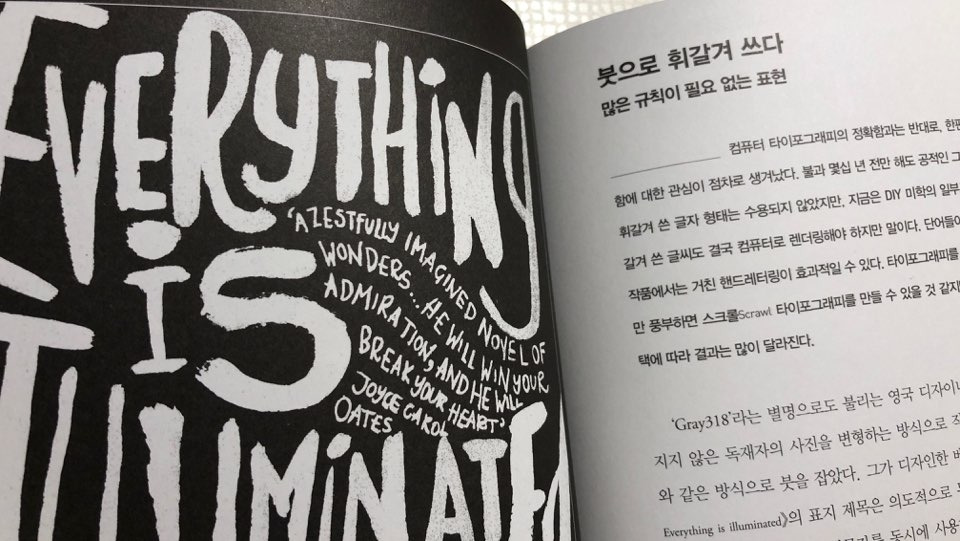 EVERYTHING
iS
ILLUMINATED
'A ZESTFULLY IMAGINED NOVEL OF
WONDERS... HE WILL WIN YOUR
ADMIRATION, AND HE WILL
BREAK YOUR HEART'
JOYCE CAROL
OATES
붓으로 휘갈겨 쓰다
많은 규칙이 필요 없는 표현
컴퓨터 타이포그래피의 정확함과는 반대로, 한편
함에 대한 관심이 점차로 생겨났다. 불과 몇십 년 전만 해도 공적인 그
휘갈겨 쓴 글자 형태는 수용되지 않았지만, 지금은 DIY 미학의 일부
갈겨 쓴 글씨도 결국 컴퓨터로 렌더링해야 하지만 말이다. 단어들이
작품에서는 거친 핸드레터링이 효과적일 수 있다. 타이포그래피를
만 풍부하면 스크롤Scrawl 타이포그래피를 만들 수 있을 것 같지
택에 따라 결과는 많이 달라진다.
'Gray318'라는 별명으로도 불리는 영국 디자이너
지지 않은 독재자의 사진을 변형하는 방식으로 작
와 같은 방식으로 붓을 잡았다. 그가 디자인한
Everything is illuminated》의 표지 제목은 의도적으로
동시에 사용